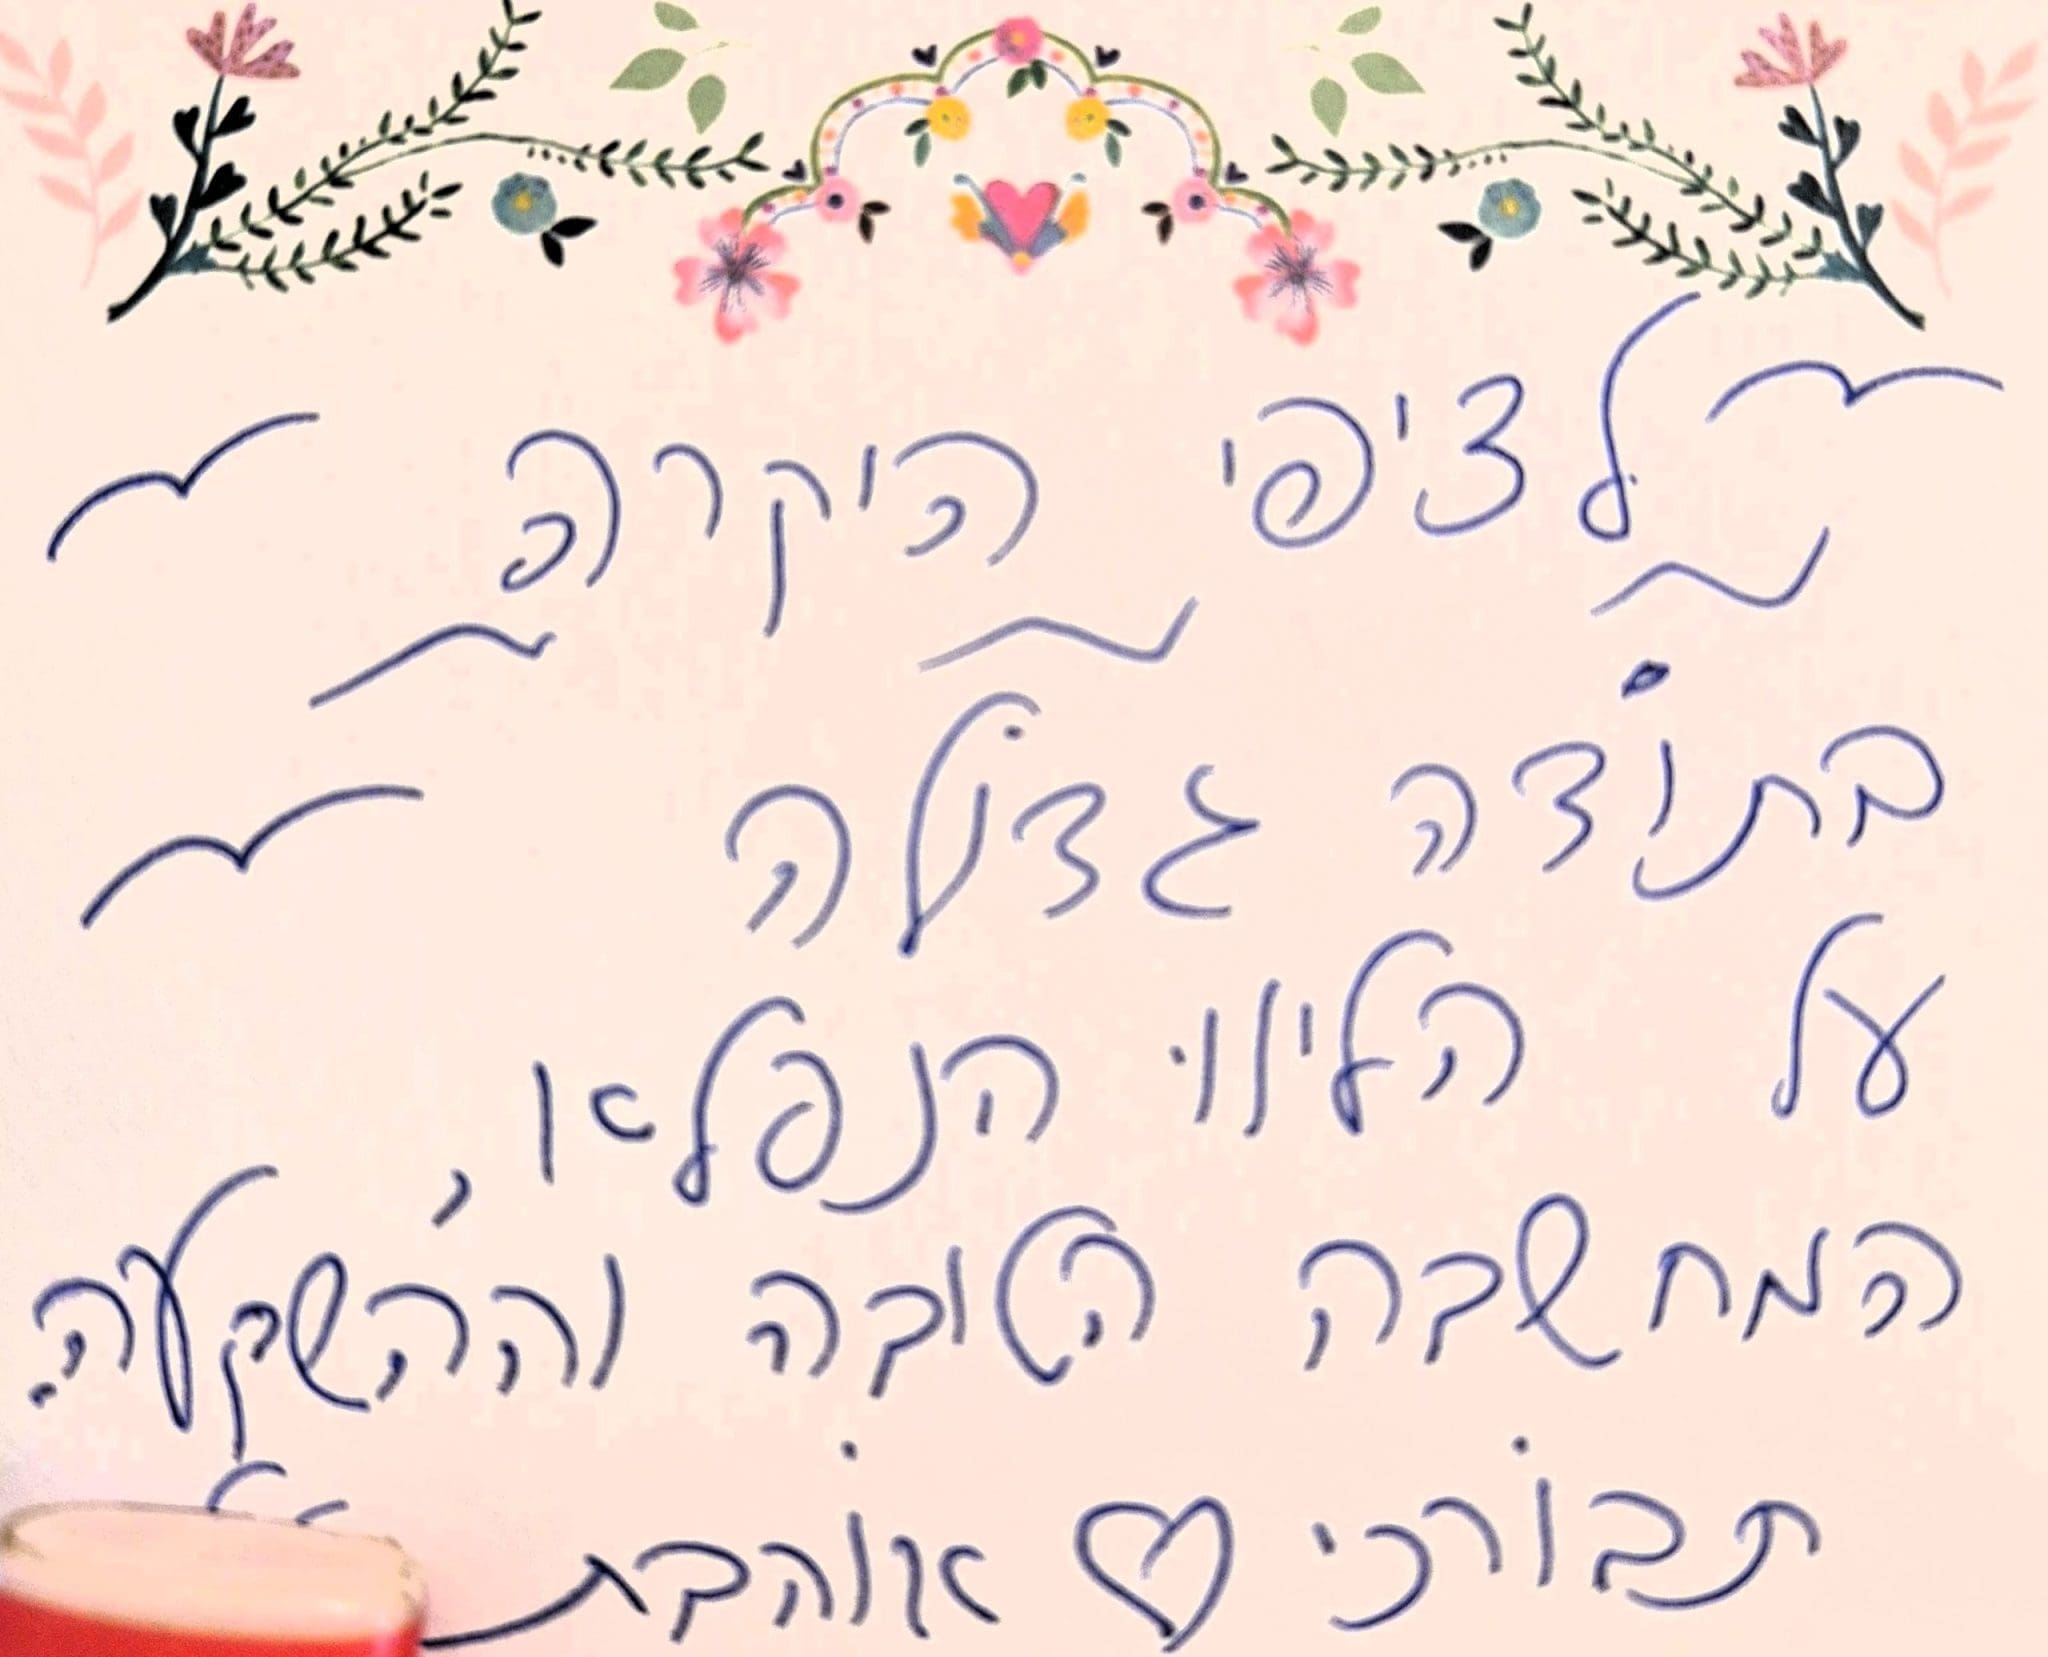 לציפי היקרה
בתוֹדה גדוֹלה
על הליווי הנפלא,
המחשבה הטובה וההשקעה.
תבוֹרכי ♡ אוֹהבת